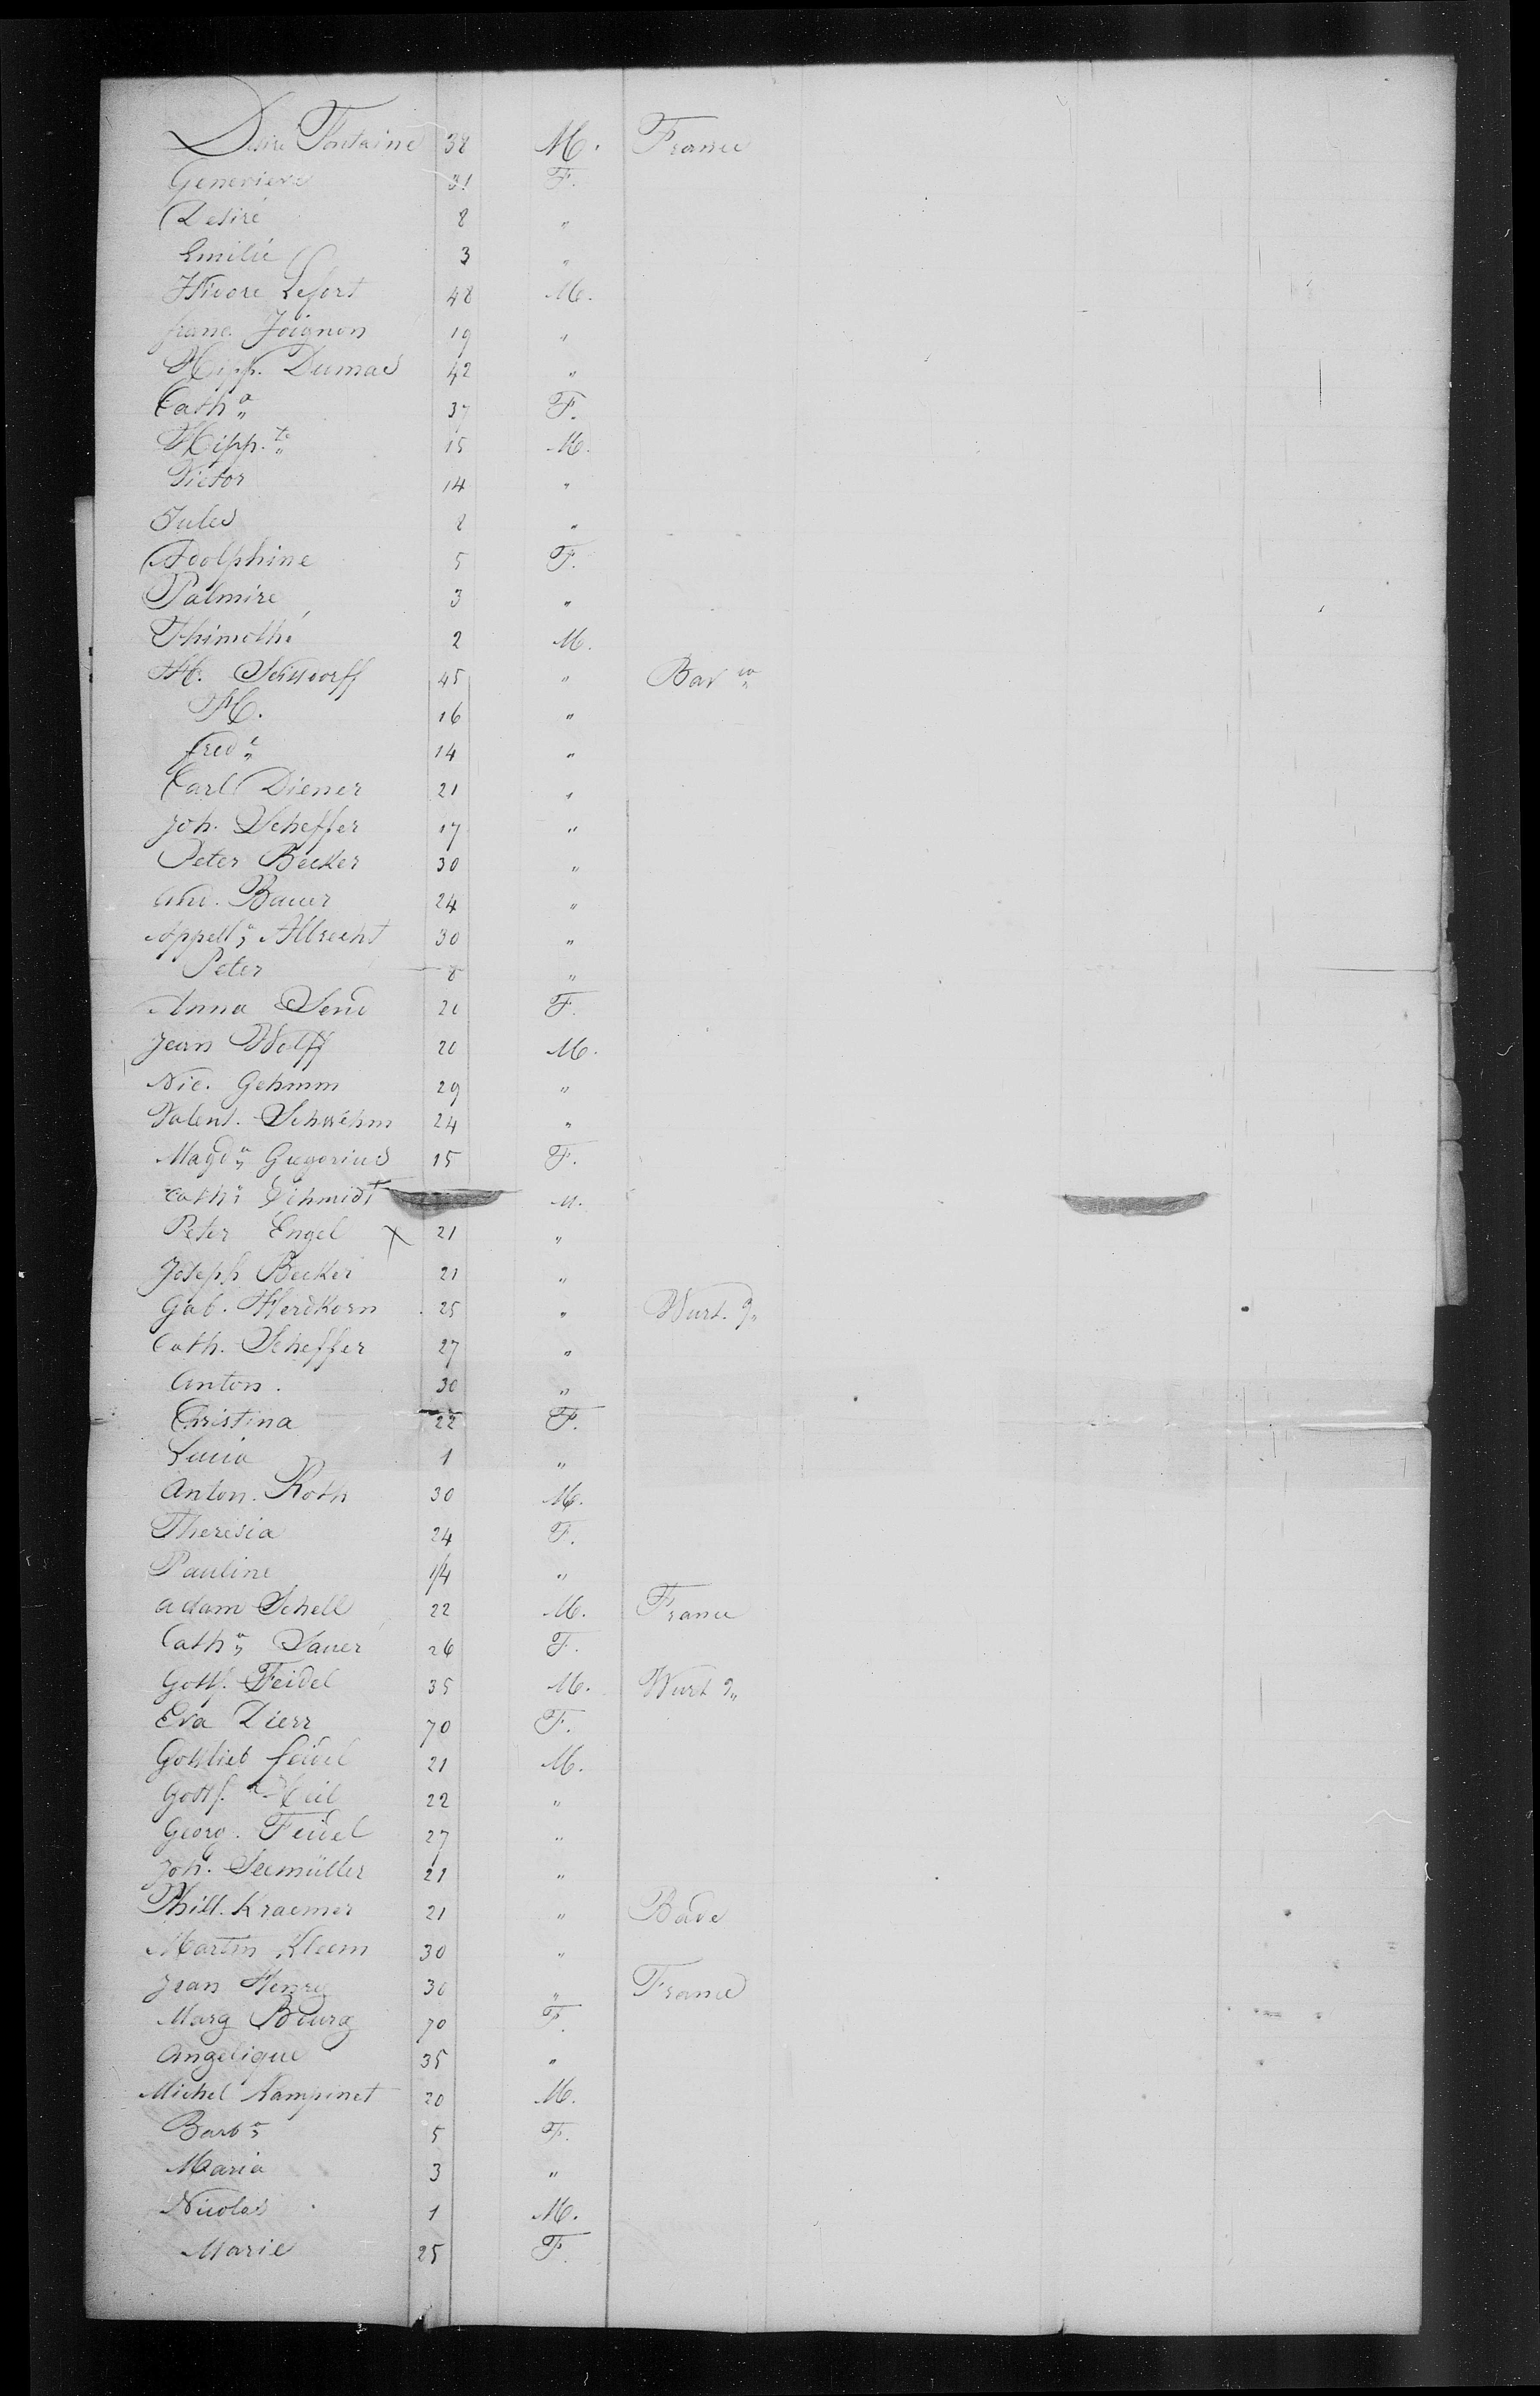 Desire Fontaine 38 M. France
Genevieve 31 F.
Desiré 8 "
Emilie 3 "
Lefort 48 M.
franc. Joignon 19 "
Hipp. Dumas 42 "
Cath.a 37 F.
Hipp.te 15 M.
Victor 14 "
Jules 8 "
Adolphine 5 F.
Palmire 3 "
Thimothé 2 M.
45 " Bav.ia
H. 16 "
fred.c 14 "
Carl Diener 21 "
Joh. Scheffer 17 "
Peter Becker 30 "
And. Bauer 24 "
Albrecht 30 "
Peter 8 "
Anna Send 20 F.
Jean Wolff 20 M.
Nic. Gehmm 29 "
Valent. Schwehm 24 "
Magd.a Gregorius 15 F.
Cath.a Schmidt M.
Peter Engel X 21 "
Joseph Becker 21 "
Gab. Herdkorn 25 " Wurt.g
Cath. Scheffer 27 "
Anton. 30 "
Christina 22 F.
Lucia 1 "
Anton. Roth 30 M.
Theresia 24 F.
Pauline 1/4 "
Adam Schell 22 M. France
Cath.a Sauer 26 F.
Gottf. Feidel 35 M. Wurt g
Eva Dierr 70 F.
Gottlieb feidel 21 M.
Gottf. 22 "
Georg. Feidel 27 "
Joh. Seemüller 21 "
Phill. Kraemer 21 " Bade
Martin Kleem 30 "
Jean Henry 30 " France
Marg Bourg 70 F.
Angelique 35 "
Michel Kampinet 20 M.
Barb.a 5 F.
Maria 3 "
Nicolas 1 M.
Marie 25 F.